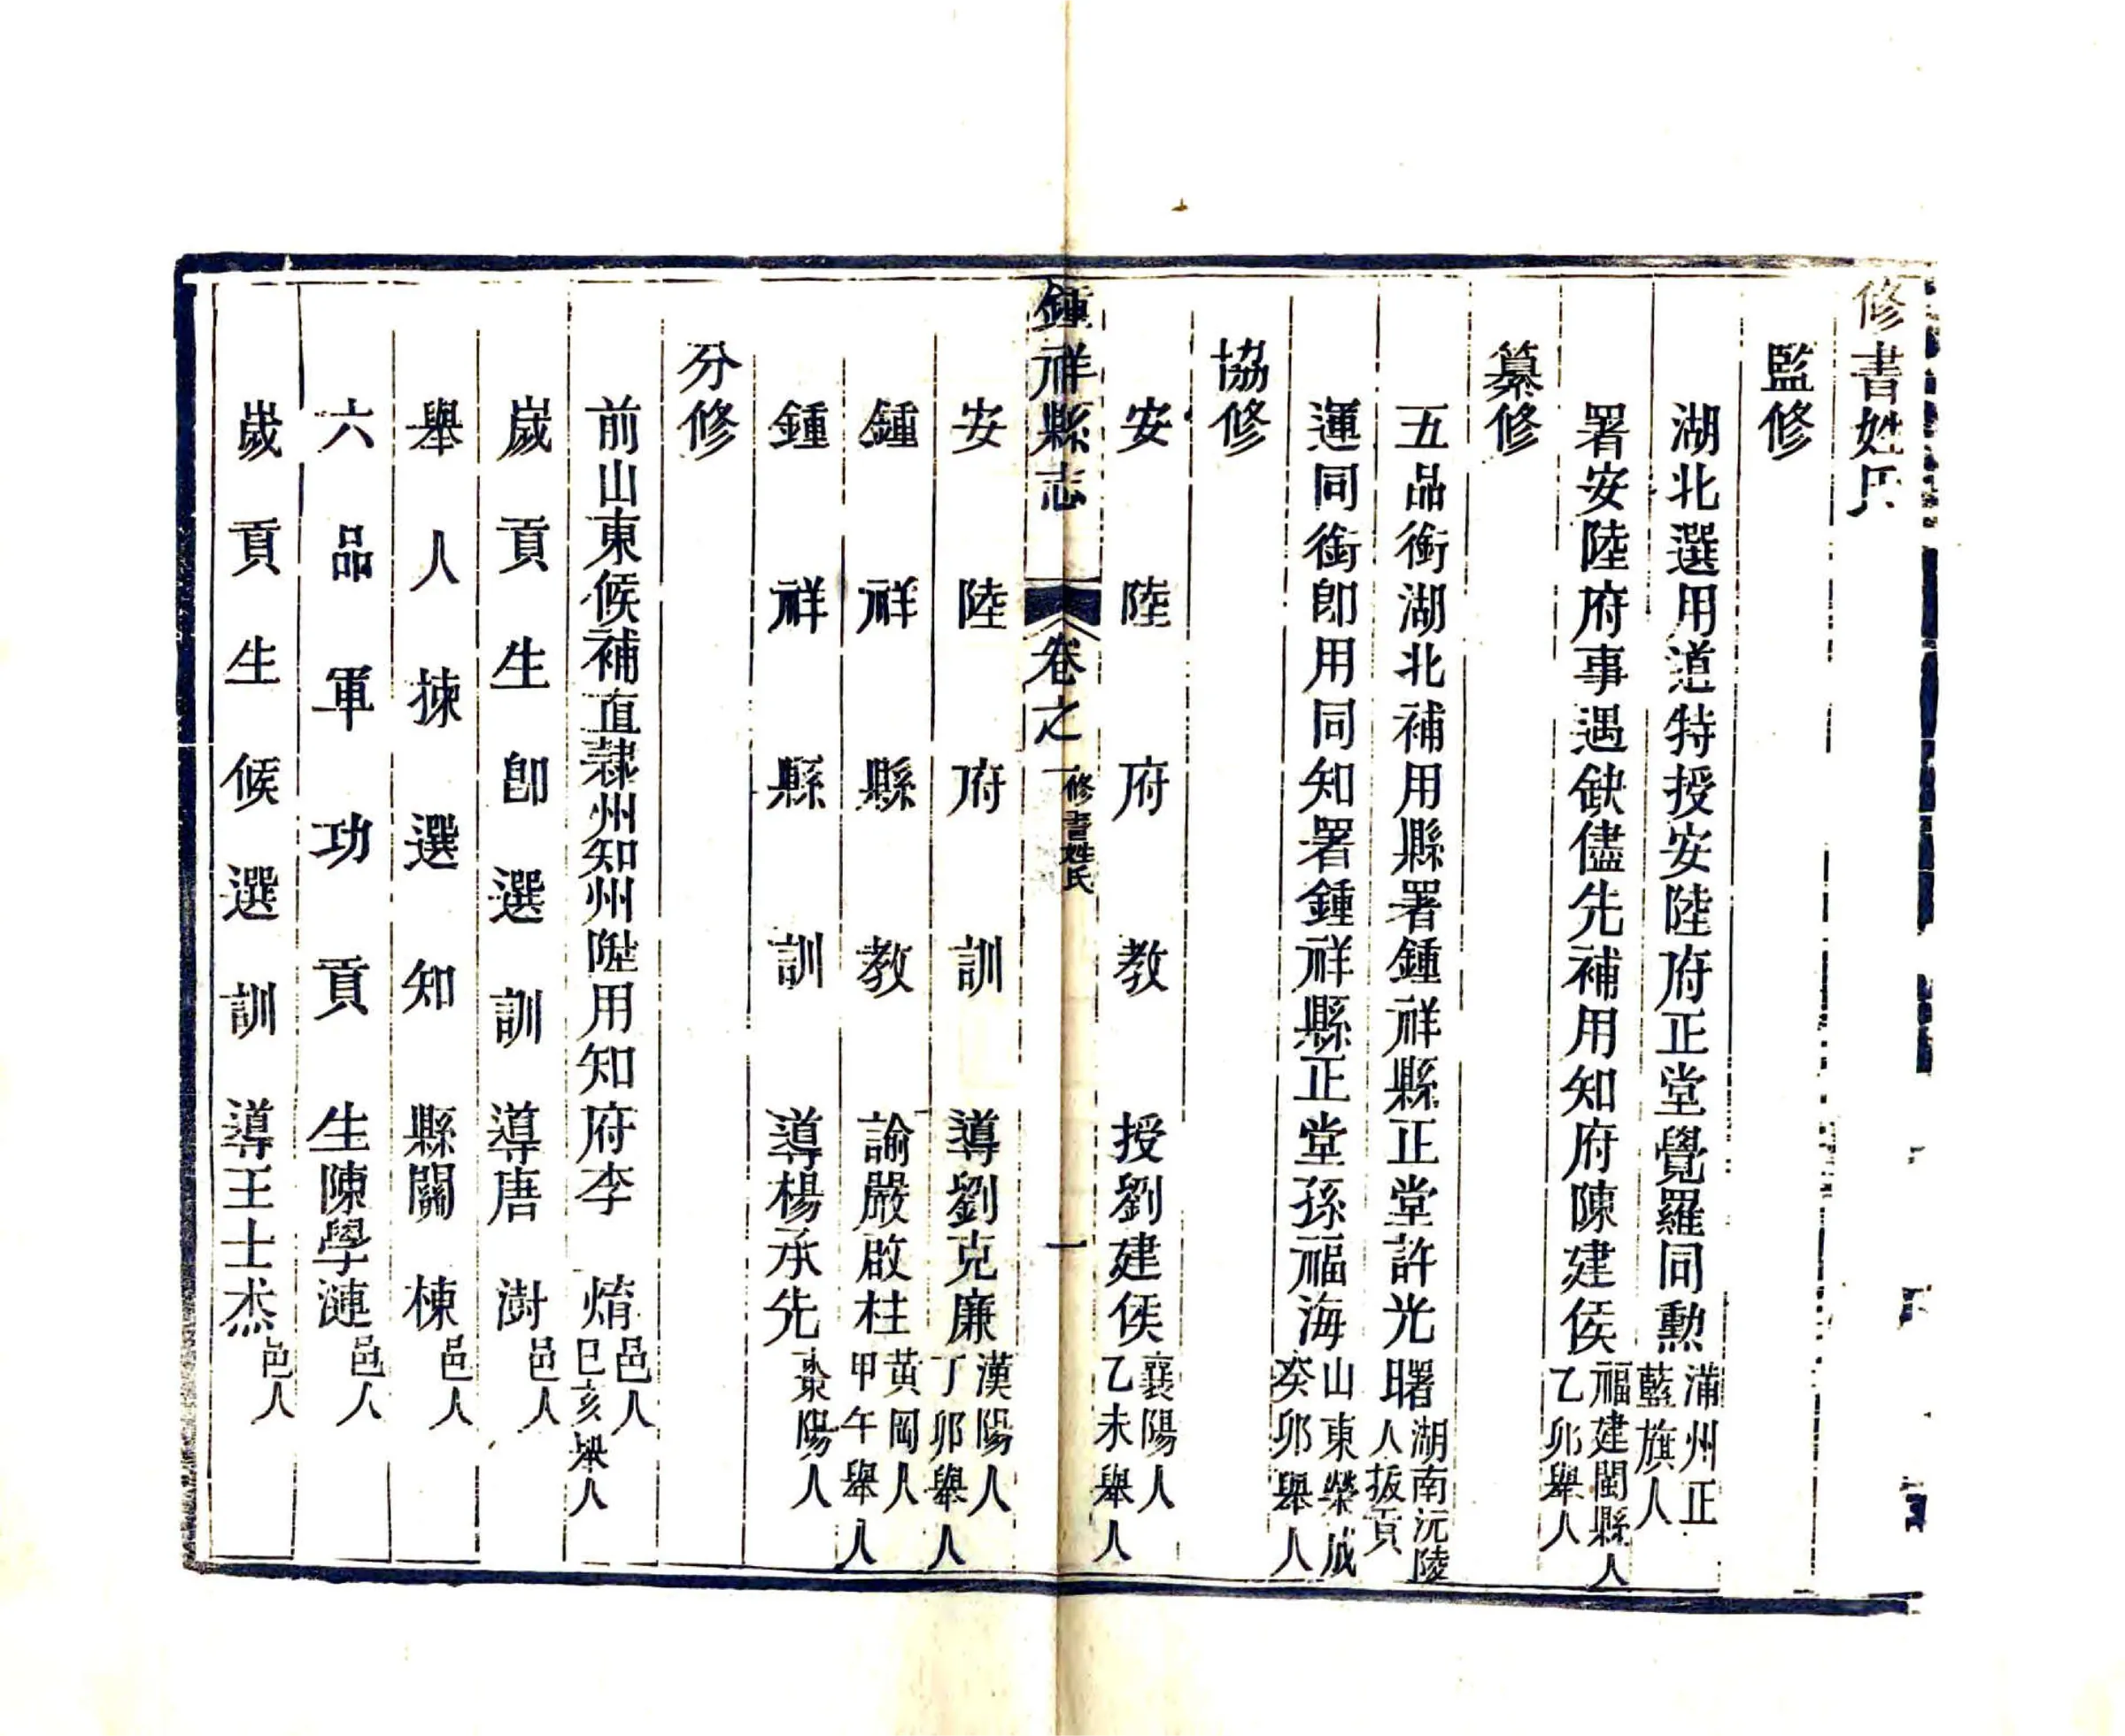 修書姓氏
監修
湖北選用道特授安陸府正堂覺羅同勲滿州正藍旗人
署安陸府事遇缺儘先補用知府陳建侯福建閩縣人乙卯舉人
纂修
五品銜湖北補用縣署鍾祥縣正堂許光曙湖南沅陵人拔貢
運同銜卽用同知署鍾祥縣正堂孫福海山東榮成癸卯舉人
協修
安陸府教授劉建侯襄陽人乙未舉人
鍾祥縣志 卷之一 修書姓氏 一
安陸府訓導劉克廉漢陽人丁卯舉人
鍾祥縣教諭嚴啟柱黃岡人甲午舉人
鍾祥縣訓導楊承先棗陽人
分修
前山東候補直隷州知州陞用知府李 焴邑人巳亥舉人
嵗貢生卽選訓導唐 澍邑人
舉人揀選知縣關 棟邑人
六品軍功貢生陳學漣邑人
嵗貢生候選訓導王士杰邑人